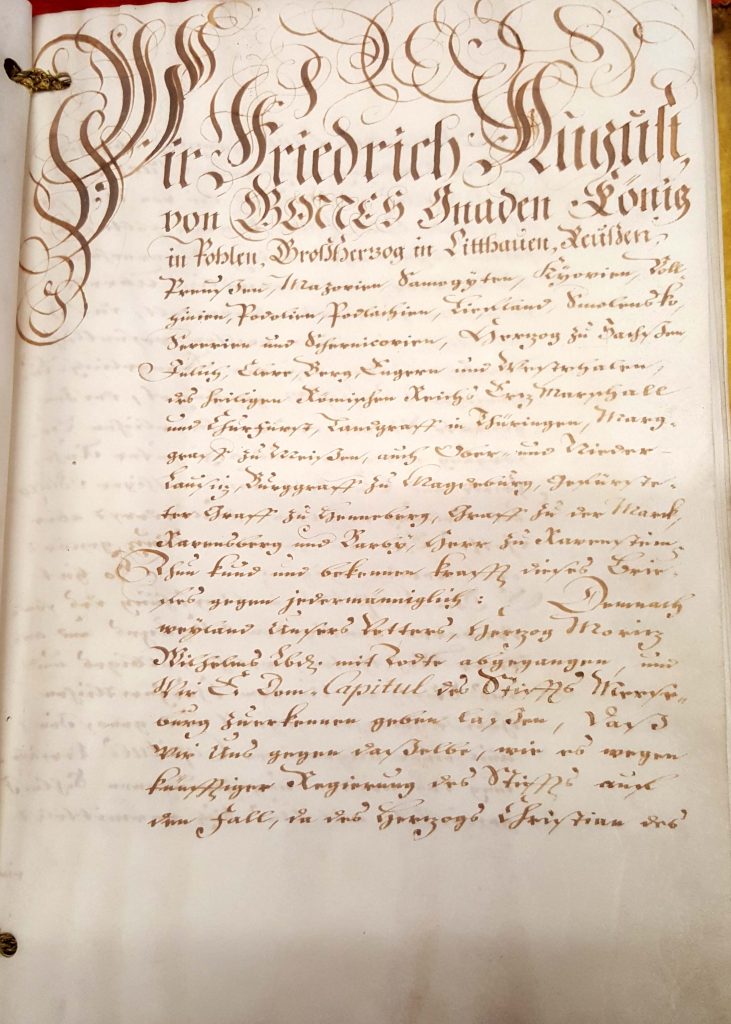 Wir Friedrich August,
von GOTTES Gnaden König
in Pohlen, Großherzog in Litthauen, Reußen,
Preußen, Mazovien, Samogyten, Kyovien, Voll-
hinien, Podolien, Podlachien, Liefland, Smolensko,
Severien und Schernicovien, Herzog zu Sachßen
Jülich, Cleve, Berg, Engern und Westphalen,
des heiligen Römischen Reichs Erz Marschall
und Churfürst, Landgraff in Thüringen, Marg-
graff zu Meißen, auch Ober- und Nieder-
Lausiz, Burggraff zu Magdeburg, Gefürste-
ter Graff zu Henneberg, Graff zu der Marck,
Ravensberg und Barby, Herr zu Ravenstein.
Thun kund und bekennen krafft dieses Brie-
fes gegen jedermänniglich: Demnach
weyland Unsers Vetters, Herzog Moritz
Wilhelms Lbd. mit Todte abgegangen, und
Wir E. Dom-Capitul des Stiffts Merse-
burg zuerkennen geben laßen, daß
Wir Uns gegen daßelbe, wie es wegen
künfftiger Regierung des Stiffts auf
den Fall, da des Herzogs Christian des